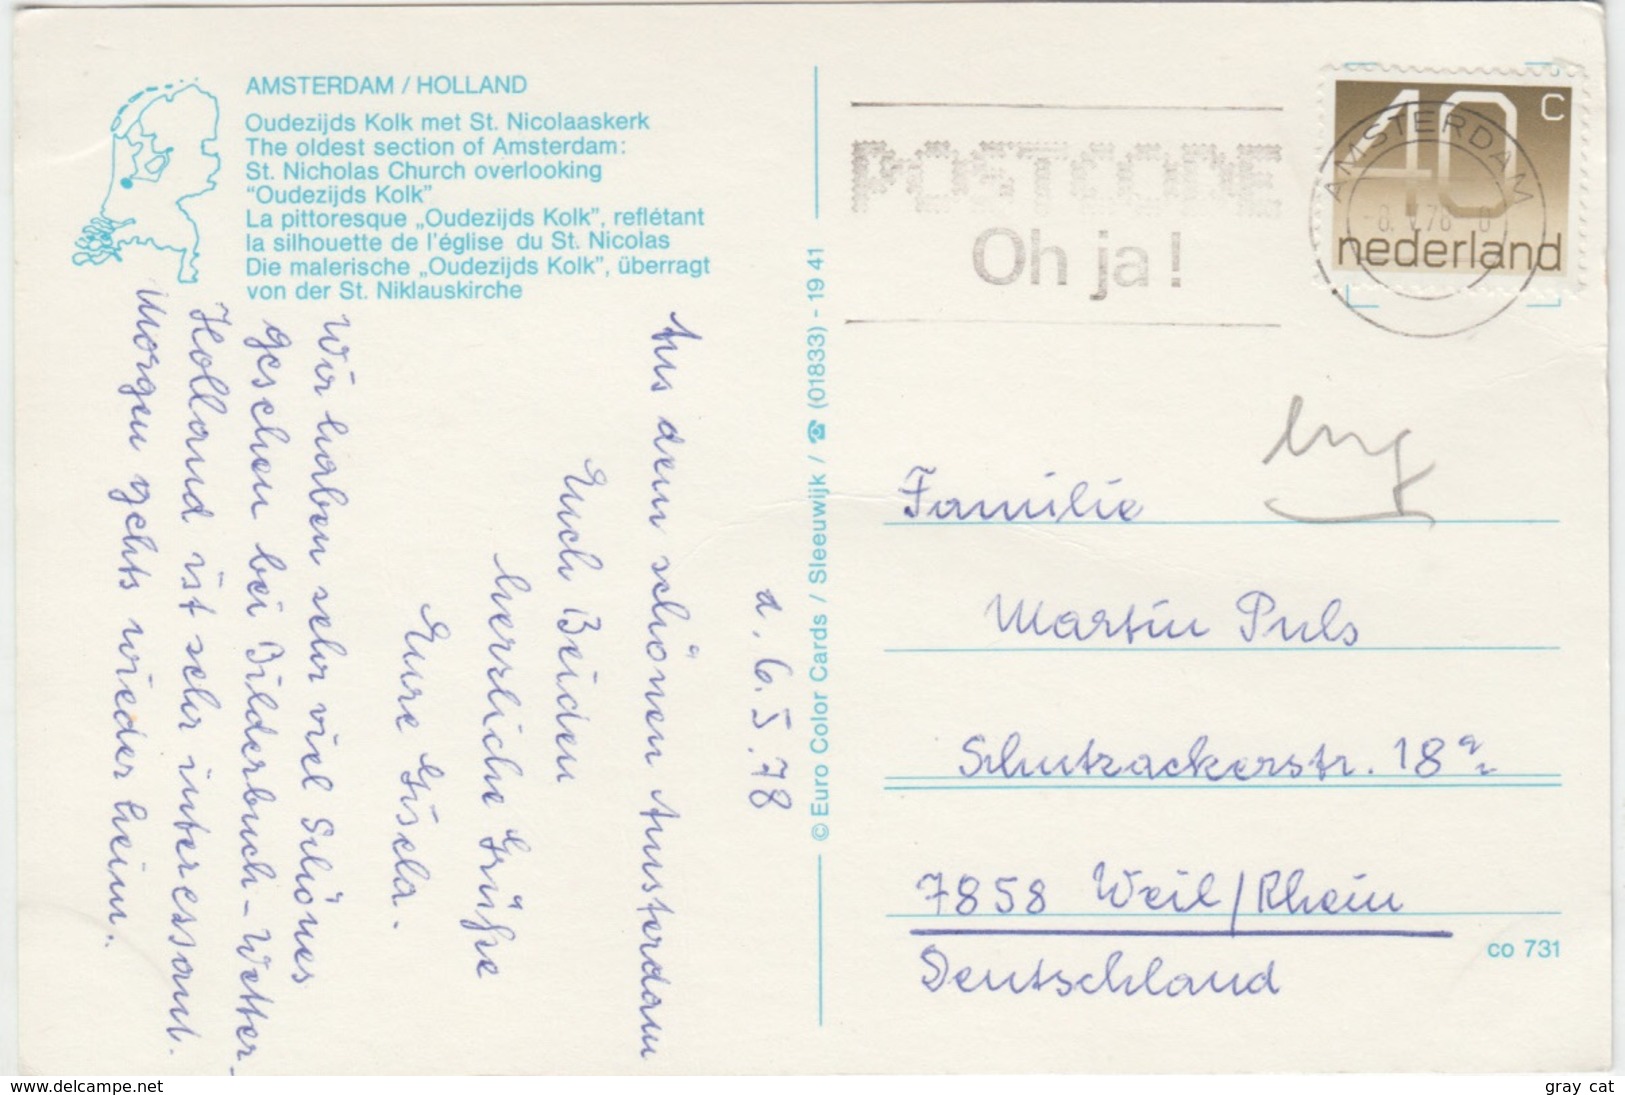 AMSTERDAM / HOLLAND
Oudezijds Kolk met St. Nicolaaskerk
The oldest section of Amsterdam:
St. Nicholas Church overlooking
"Oudezijds Kolk"
La pittoresque „Oudezijds Kolk", reflétant
la silhouette de l'église du St. Nicolas
Die malerische „Oudezijds Kolk", überragt
von der St. Niklauskirche
a. 6.5.78
Aus dem schönen Amsterdam
Euch Beiden
herzliche Grüße
Eure Gisela.
Wir haben sehr viel Schönes
gesehen bei Bilderbuch-Wetter
Holland ist sehr interessant.
Morgen gehts wieder heim.
© Euro Color Cards / Sleeuwijk / ☎ (01833) - 19 41
POSTCODE
Oh ja!
AMSTERDAM
-8.V.78
40 c
nederland
Familie
Martin Puls
Schutzackerstr. 18a
7858 Weil/Rhein
Deutschland
co 731
www.delcampe.net
gray cat